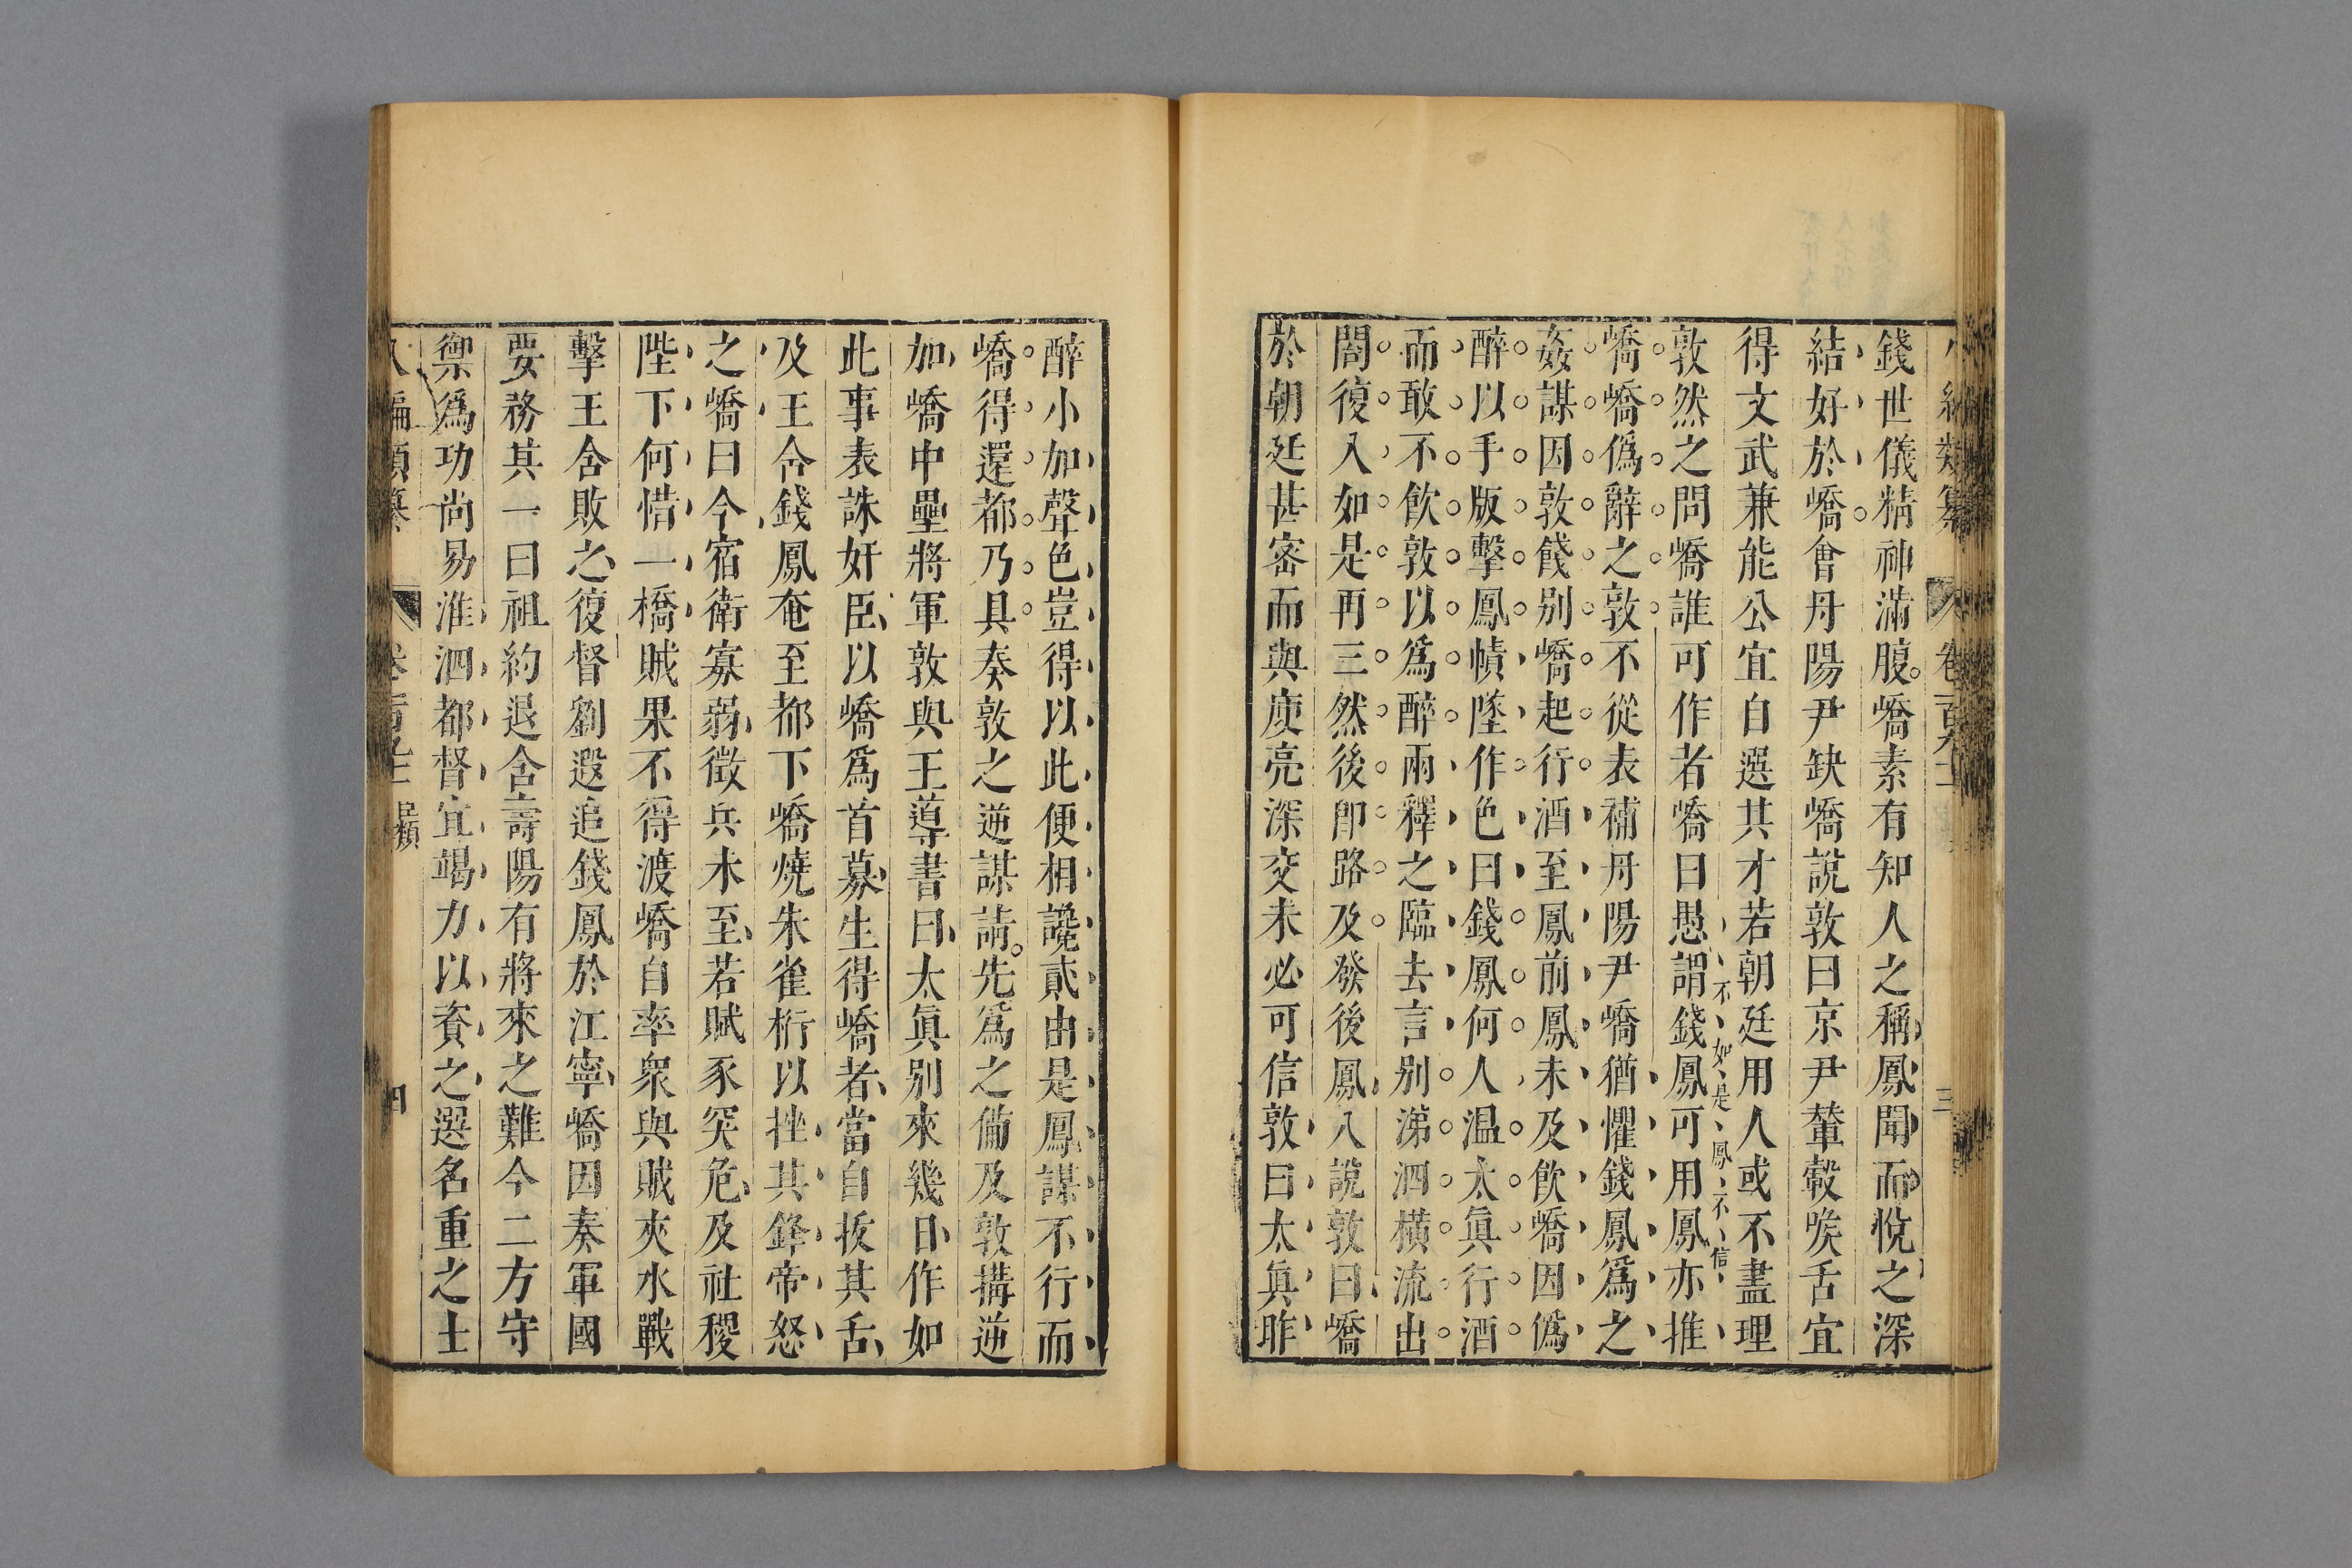 錢世儀精神滿腹嶠素有知人之稱鳳聞而悅之深
結好於嶠會丹陽尹缺嶠說敦曰京尹輦轂喉舌宜
得文武兼能公宜自選其才若朝廷用人或不盡理
敦然之問嶠誰可作者嶠曰愚謂錢鳳可用鳳亦推
不如是鳳不信
嶠嶠僞辭之敦不從表補丹陽尹嶠猶懼錢鳳爲之
姦謀因敦餞別嶠起行酒至鳳前鳳未及飲嶠因僞
醉以手版擊鳳幘墜作色曰錢鳳何人温太眞行酒
而敢不飲敦以爲醉兩釋之臨去言別涕泗橫流出
閤復入如是再三然後卽路及發後鳳入說敦曰嶠
於朝廷甚密而與庾亮深交未必可信敦曰太眞昨
醉小加聲色豈得以此便相讒貳由是鳳謀不行而
嶠得還都乃具奏敦之逆謀請先爲之備及敦搆逆
加嶠中壘將軍敦與王導書曰太眞別來幾日作如
此事表誅奸臣以嶠爲首募生得嶠者當自拔其舌
及王含錢鳳奄至都下嶠燒朱雀桁以挫其鋒帝怒
之嶠曰今宿衛寡弱徵兵未至若賊豕突危及社稷
陛下何惜一橋賊果不得渡嶠自率衆與賊夾水戰
擊王含敗之復督劉遐追錢鳳於江寧嶠因奏軍國
要務其一曰祖約退舍壽陽有將來之難今二方守
禦爲功尚易淮泗都督宜竭力以資之選名重之士